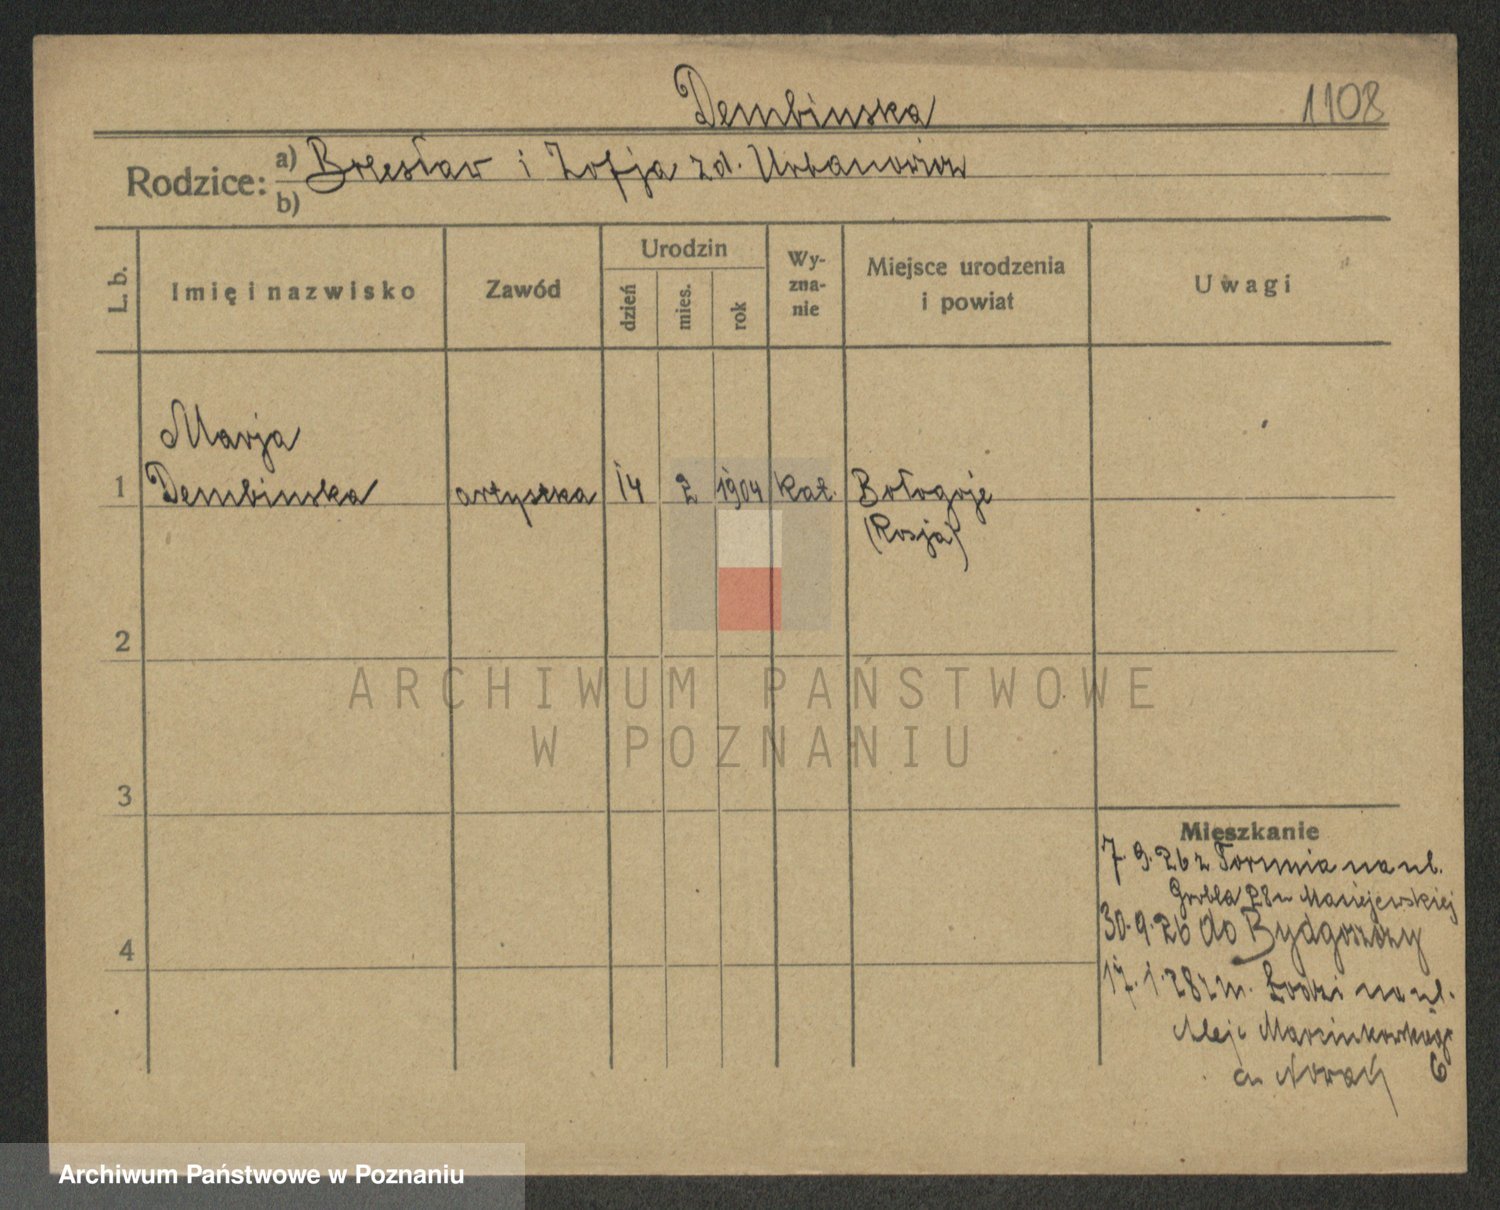 Dembinska
1108
Rodzice: a) Bolesław i Zofja zd. Urbanowicz
b)
L. b.
Imię i nazwisko
Zawód
Urodzin
dzień
mies.
rok
Wy-
zna-
nie
Miejsce urodzenia
i powiat
Uwagi
Marja
1 Dembinska artystka 14 2 1904 kat. Bołogoje
(Rosja)
2
ARCHIWUM PAŃSTWOWE
W POZNANIU
3
Mieszkanie
7.9.26 z Torunia na ul.
Grobla 28 u Maciejewskiej
30.9.26 do Bydgoszczy
4
17.1.28 z m. Łodzi na ul.
Alej. Marcinkowskiego
6
u
Archiwum Państwowe w Poznaniu